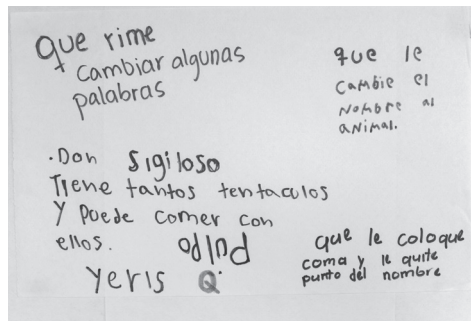 que rime
+ cambiar algunas
palabras
que le
cambie el
nombre al
animal.
.Don Sigiloso
Tiene tantos tentaculos
Y puede comer con
ellos.
Pulpo
Yeris Q.
que le coloque
coma y le quite
punto del nombre